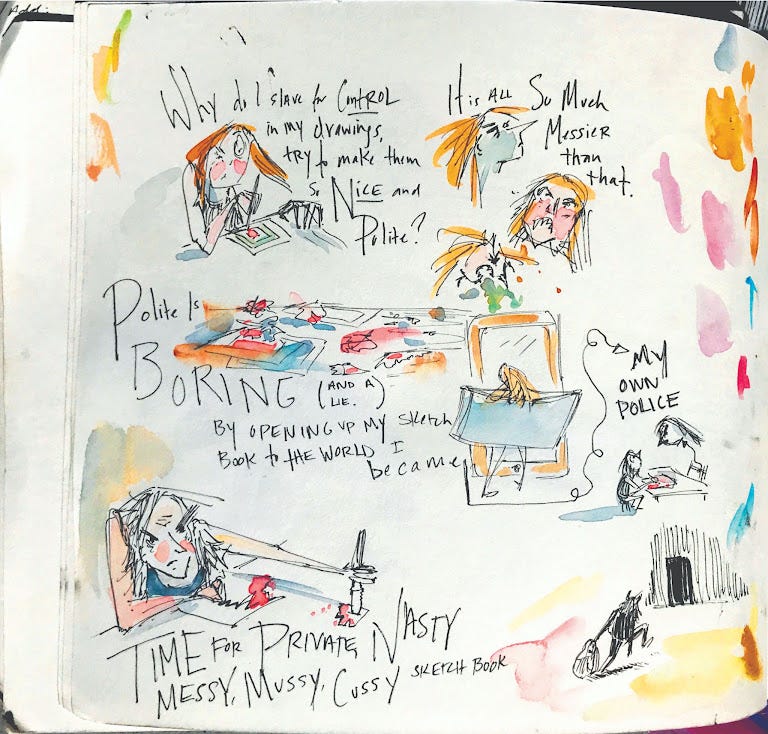 Why do I slave for CONTROL
in my drawings,
try to make them
so NICE and
Polite?
It is ALL So Much
Messier
than
that.
Polite Is
BORING (AND A
LIE.)
BY OPENING UP MY SKETCH
BOOK to the WORLD I
became
MY
OWN
POLICE
TIME FOR PRIVATE, NASTY
MESSY, MUSSY, CUSSY SKETCH BOOK